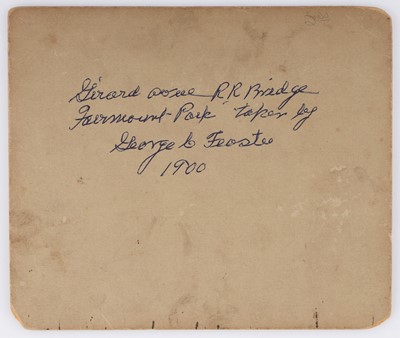 Girard ave R R Bridge
Fairmount Park taken by
George C Feaste
1900